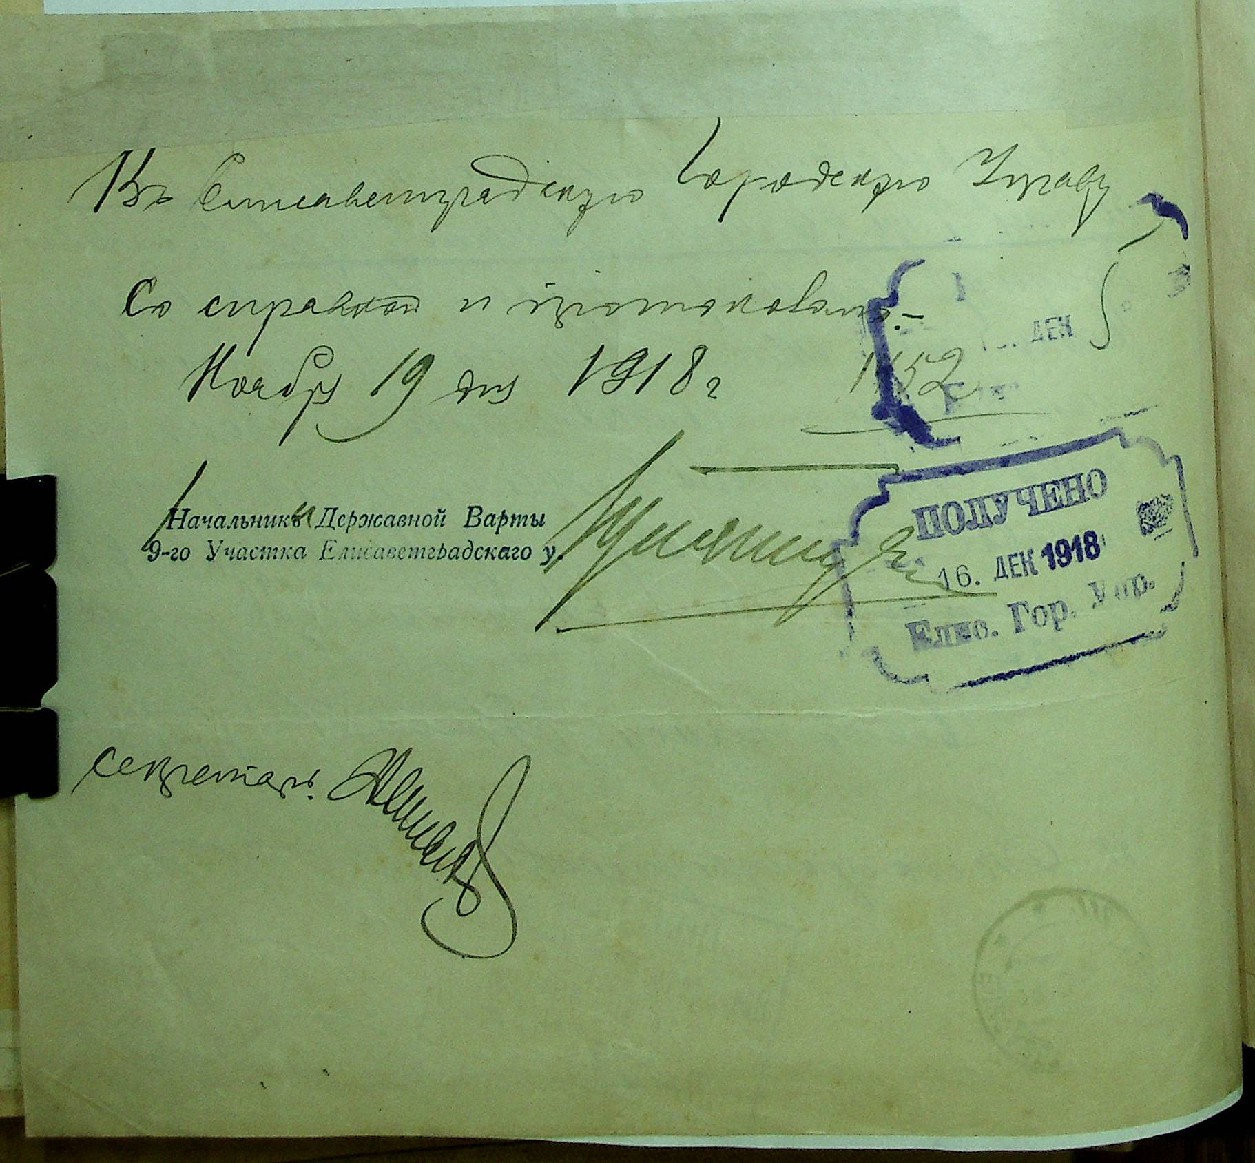 Въ Елисаветградскую Городскую Управу
Со справкой и протоколомъ.-
Ноября 19 дня 1918 г
1452
Начальникъ Державной Варты
9-го Участка Елисаветградскаго у.
ДЕК
ПОЛУЧЕНО
16. ДЕК 1918
Елис. Гор. Упр.
секретарь